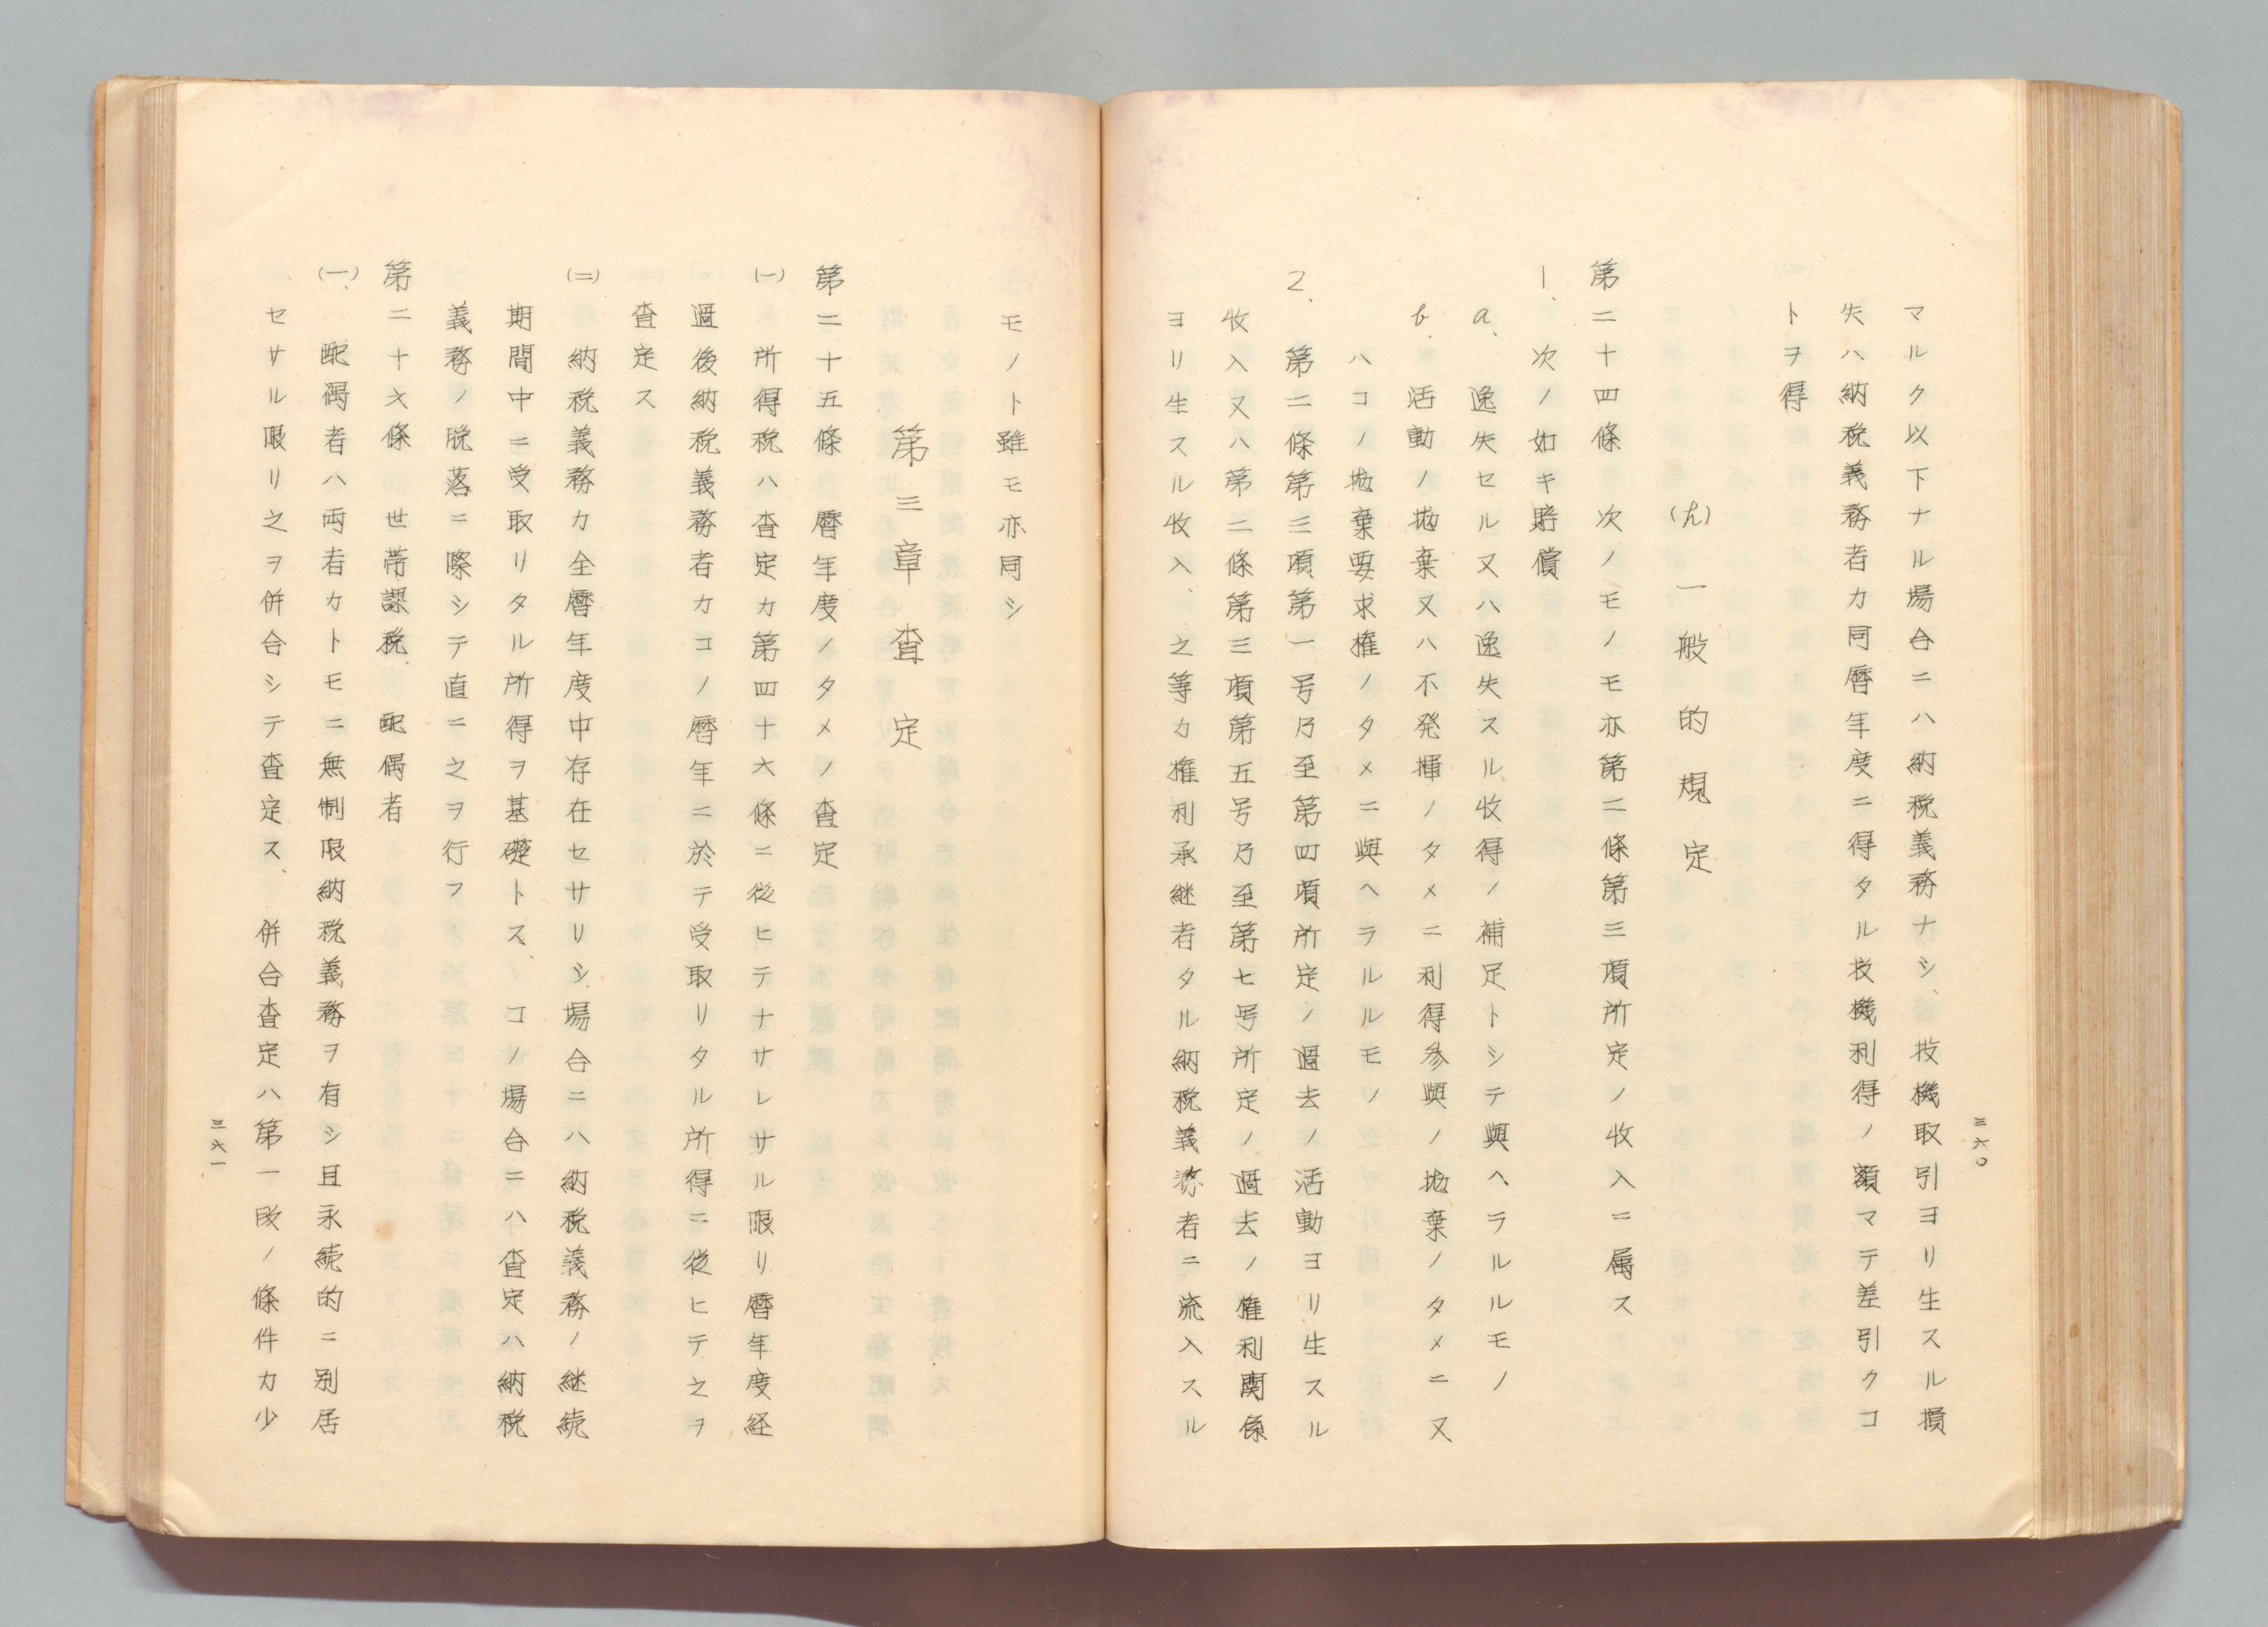 マルク以下ナル場合ニハ納税義務ナシ、投機取引ヨリ生スル損
失ハ納税義務者カ同暦年度ニ得タル投機利得ノ額マテ差引クコ
トヲ得
(h) 一般的規定
第二十四條 次ノモノモ亦第二條第三項所定ノ收入ニ属ス
1、次ノ如キ賠償
a、逸失セル又ハ逸失スル收得ノ補足トシテ與ヘラルルモノ
b、活動ノ抛棄又ハ不発揮ノタメニ利得参與ノ抛棄ノタメニ又
ハコノ抛棄要求権ノタメニ與ヘラルルモノ
2、第二條第三項第一号乃至第四項所定ノ過去ノ活動ヨリ生スル
收入又ハ第二條第三項第五号乃至第七号所定ノ過去ノ権利関係
ヨリ生スル收入、之等カ権利承継者タル納税義務者ニ流入スル
三六〇
モノト雖モ亦同シ
第三章 査定
第二十五條 暦年度ノタメノ査定
(一) 所得税ハ査定カ第四十六條ニ從ヒテナサレサル限リ暦年度経
過後納税義務者カコノ暦年ニ於テ受取リタル所得ニ從ヒテ之ヲ
査定ス
(二) 納税義務カ全暦年度中存在セサリシ場合ニハ納税義務ノ継続
期間中ニ受取リタル所得ヲ基礎トス、コノ場合ニハ査定ハ納税
義務ノ脱落ニ際シテ直ニ之ヲ行フ
第二十六條 世帯課税、配偶者
(一)、配偶者ハ両者カトモニ無制限納税義務ヲ有シ且永続的ニ別居
セサル限リ之ヲ併合シテ査定ス、併合査定ハ第一段ノ條件カ少
三六一